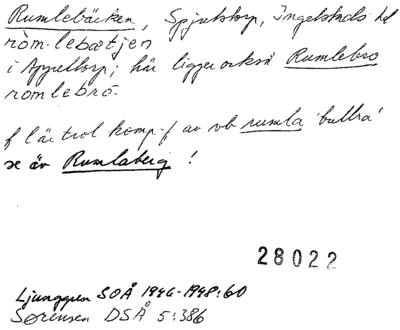 Rumlebäcken, Spjutstorp, Ingelstads hd
ròm-lebætjen
i här ligger också Rumlebro
ròmlebrō.
f l är trol komp-f av vb rumla 'bullra'
se äv Rumlaberg!
28022
Ljunggren SOÅ 1946-1948:60
Sørensen DSÅ 5:386